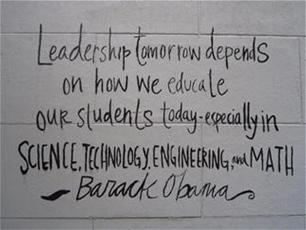 Leadership tomorrow depends
on how we educate
our students today-especially in
SCIENCE, TECHNOLOGY, ENGINEERING, and MATH
Barack Obama